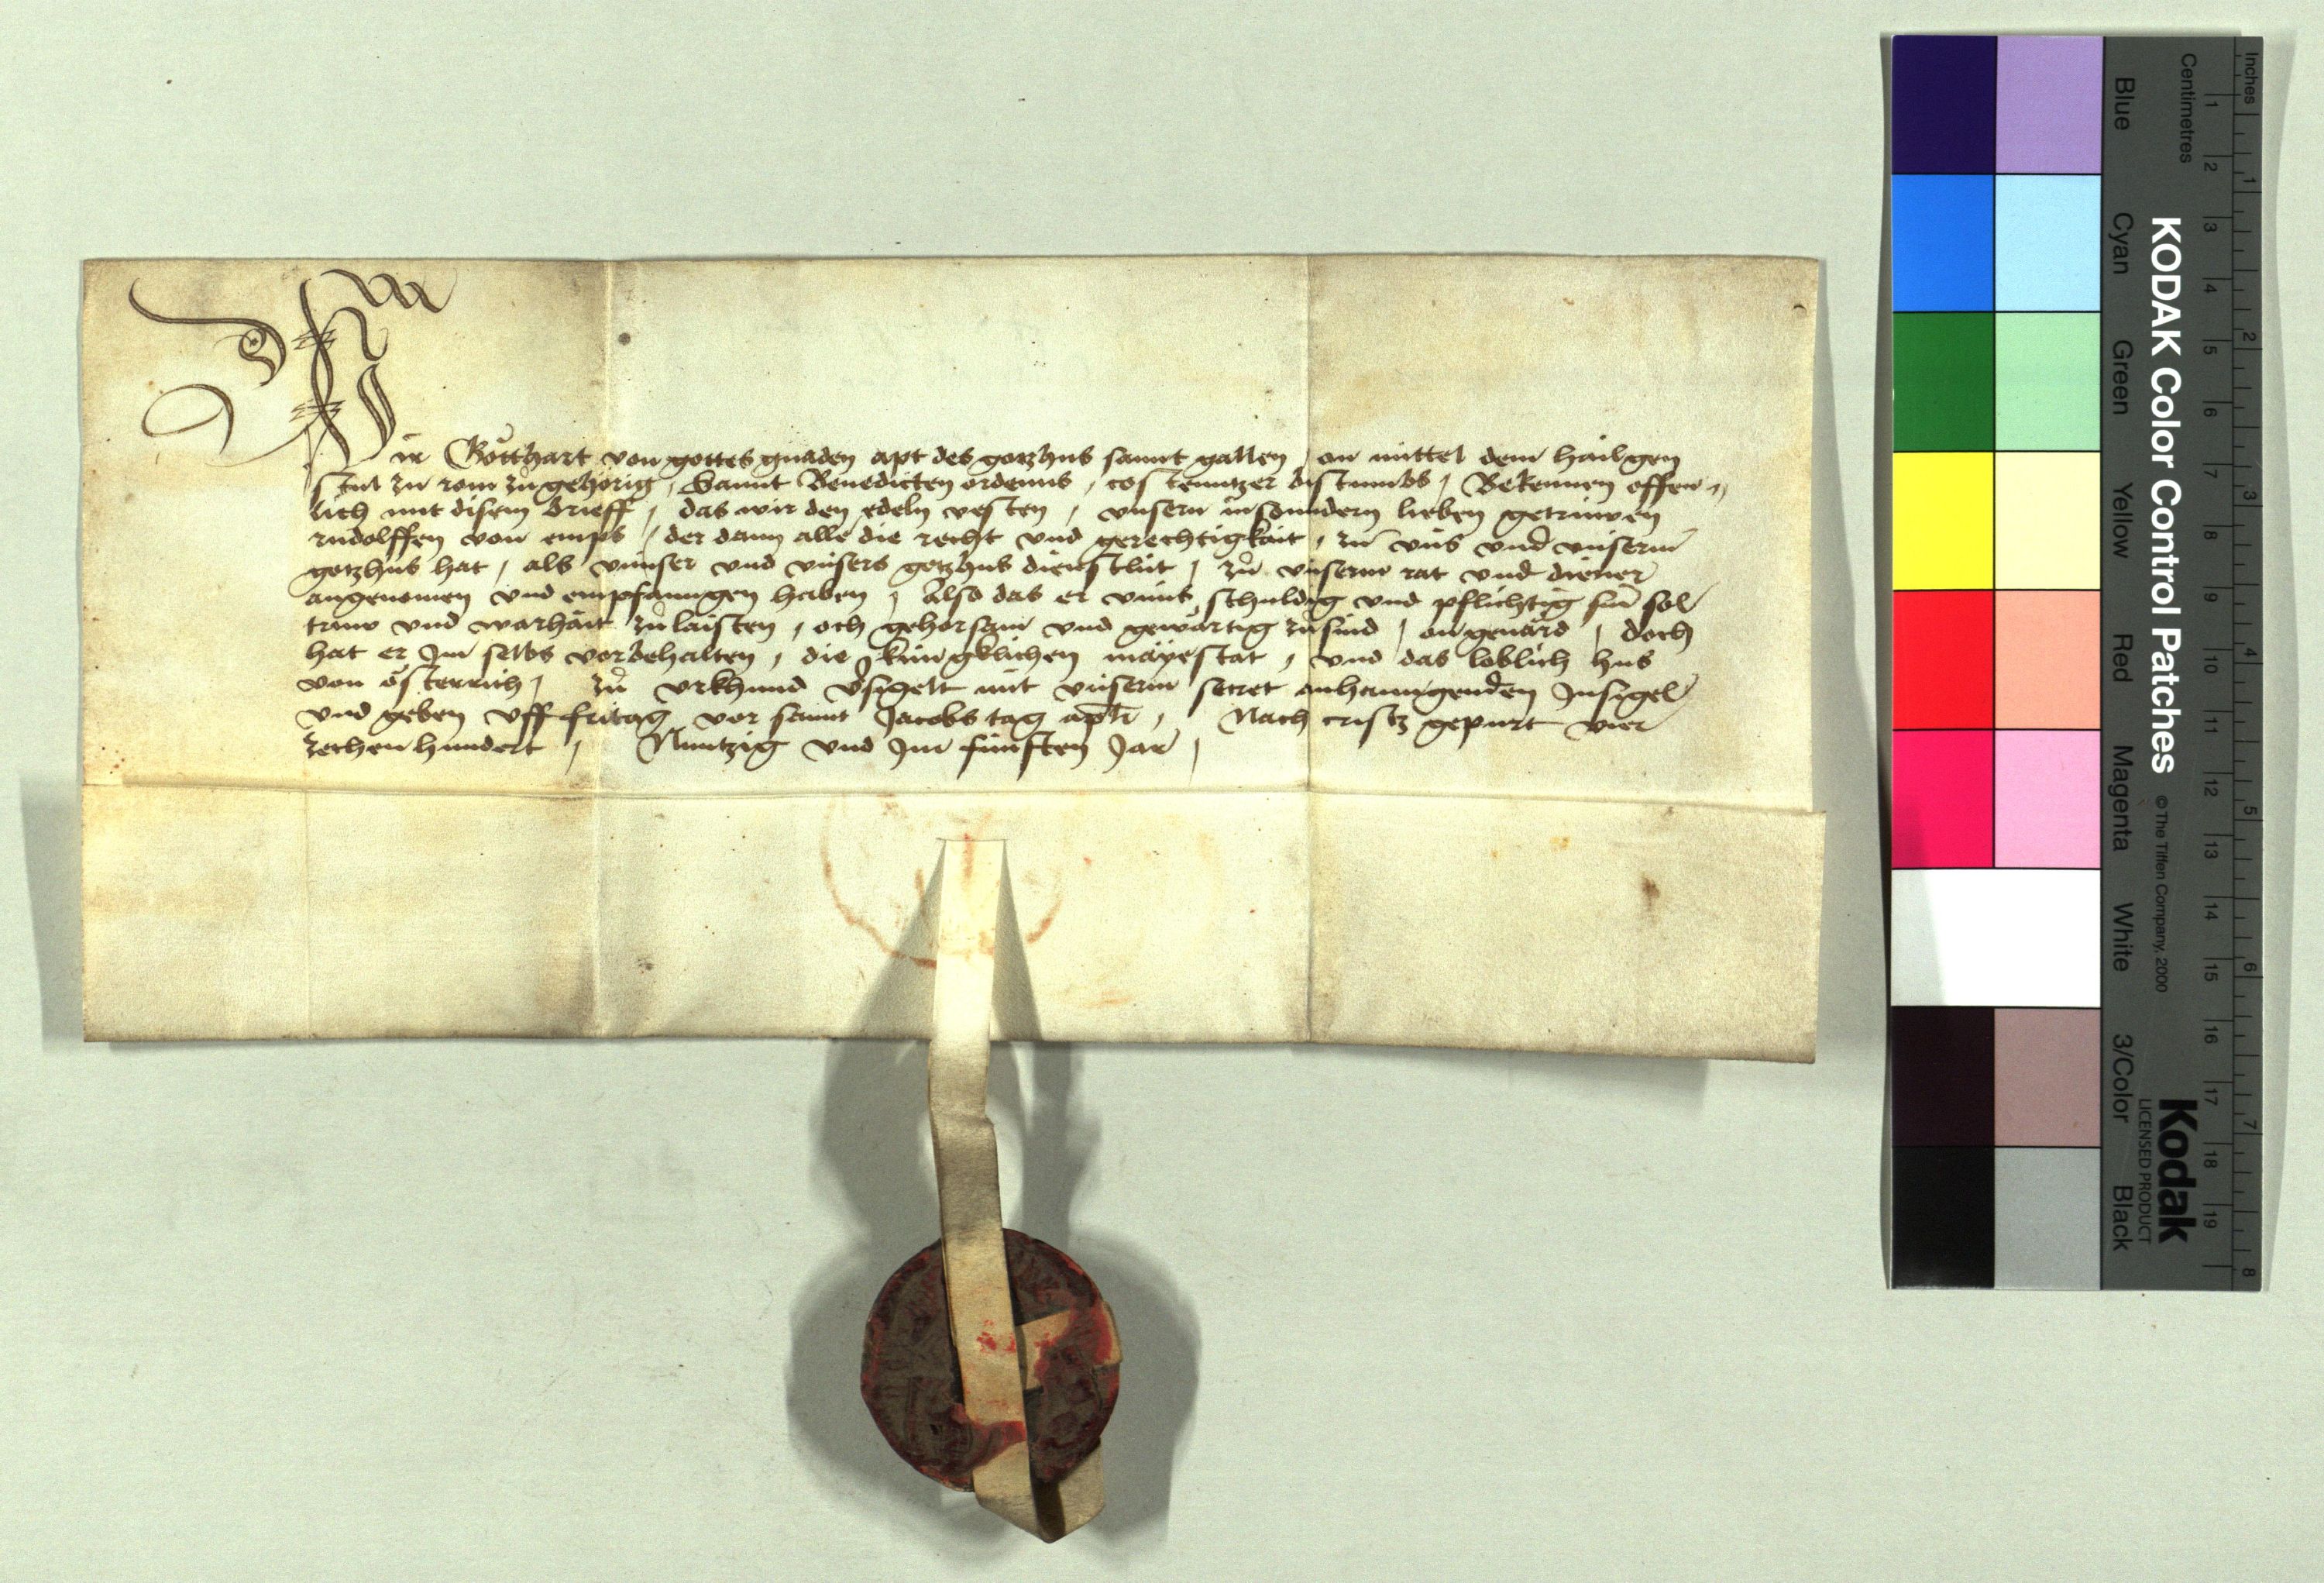 Wir Gotthart von gottes gnaden apt des gotzhus sannt gallen / on mittel dem hailgen
stul zů rom zůgehörig / Sannt Benedicten ordenns / costenntzer bistumbs / Bekennen offen,,
lich mit disem brieff / das wir den edeln vesten / unsern in sonndern lieben getrüwen
rudolffen von emps / der dann alle die recht und gerechtigkait / zů uns und unserm
gotzhus hat / als unnser und unsers gotzhus dienstlüt / zů unserm rat und diener
angenomen und empfanngen haben / Also das er unns schuldig und pflichtig sin sol
trüw und warhait zůlaisten / och gehorsam und gewärtig zůsind / on genärd / doch
hat er Im selbs vorbehalten / die künglichen mayestat / und das loblich hus
von österrich / zů urkhund versigelt mit unserm secret anhanngenden Insigel
und geben uff fritag vor sannt Jacobs tag apli / Nach cristz gepurt vier
zechenhundert / Nüntzig und Im fünfften Jar /
KODAK Color Control Patches
© The Tiffen Company, 2000
Kodak
LICENSED PRODUCT
Blue
Cyan
Green
Yellow
Red
Magenta
White
3/Color
Black
Centimetres
1 2 3 4 5 6 7 8 9 10 11 12 13 14 15 16 17 18 19
Inches
1 2 3 4 5 6 7 8